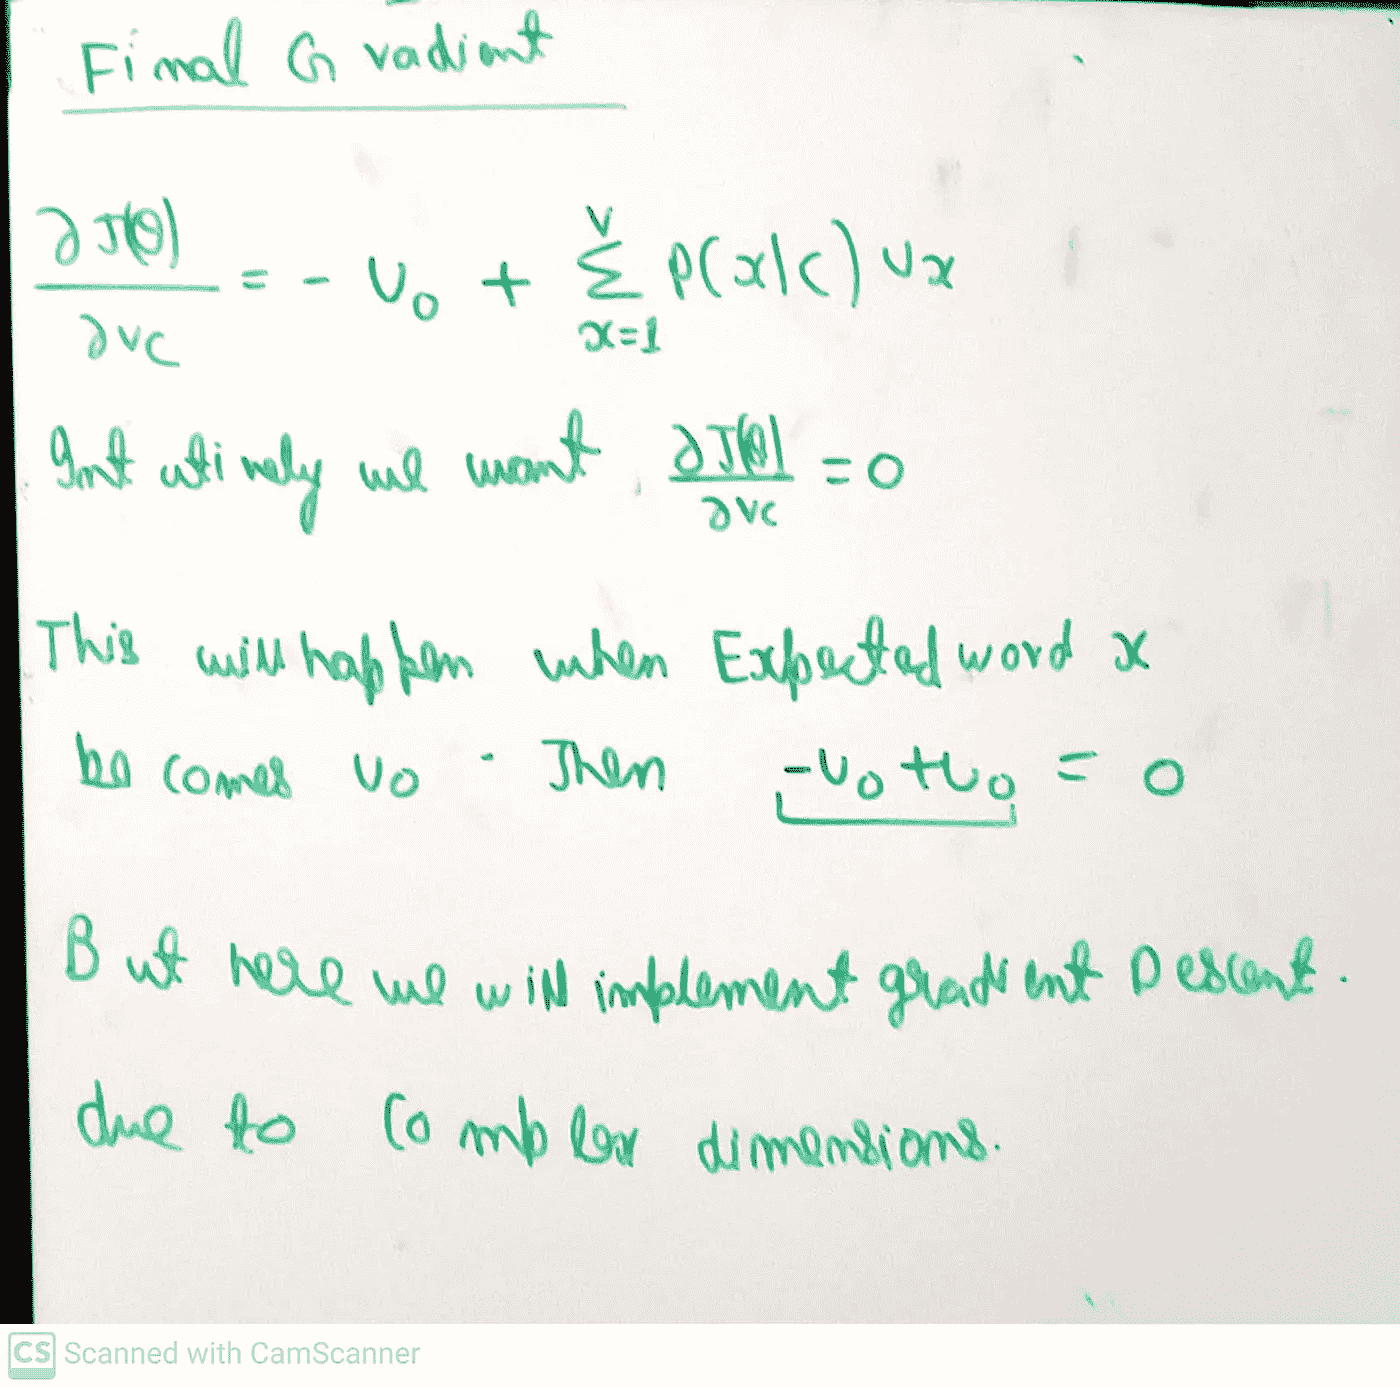 Final Gradient
∂J(θ)/∂vc = - U₀ + Σ_{x=1}^{V} P(x|c) Ux
Intutively we want ∂J(θ)/∂vc = 0
This will happen when Expected word x
becomes U₀. Then -U₀ + U₀ = 0
But here we will implement gradient Descent.
due to Complex dimensions.
CS Scanned with CamScanner